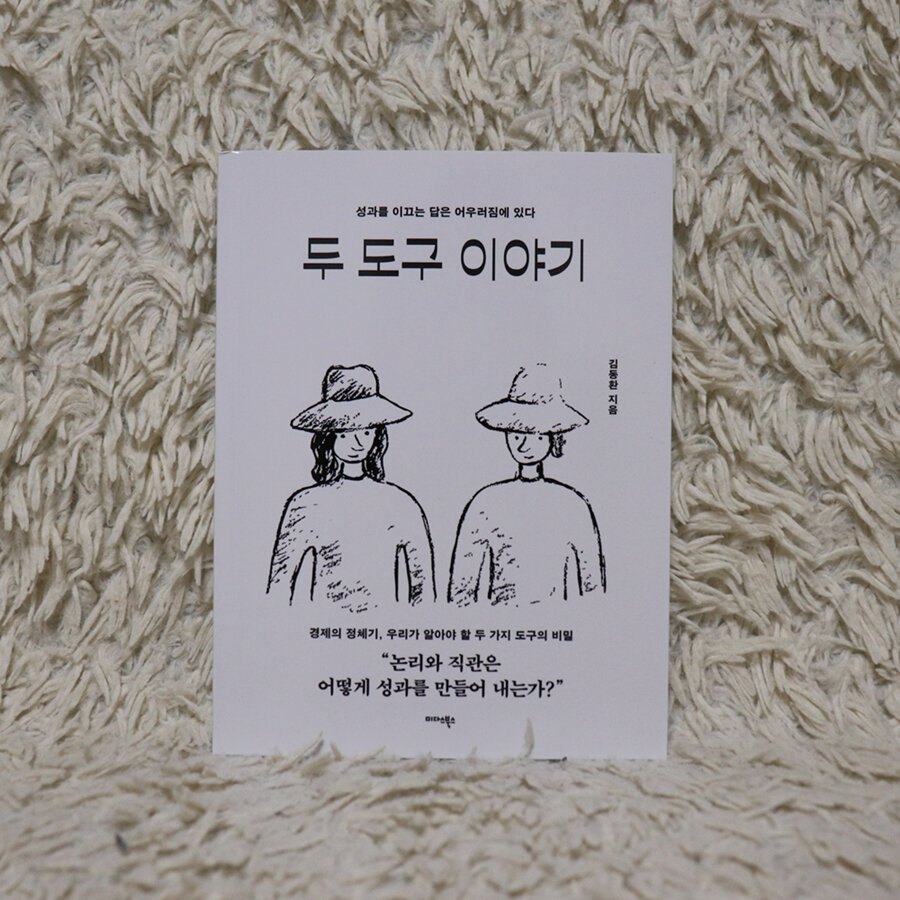 성과를 이끄는 답은 어우러짐에 있다
두 도구 이야기
김동환 지음
경제의 정체기, 우리가 알아야 할 두 가지 도구의 비밀
“논리와 직관은
어떻게 성과를 만들어 내는가?”
미다스북스